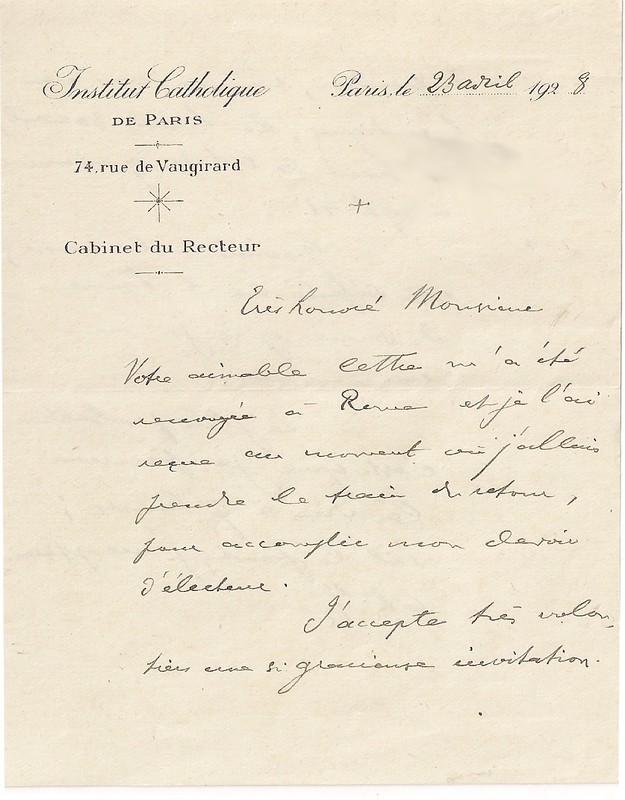 Institut Catholique
DE PARIS
74, rue de Vaugirard
Cabinet du Recteur
Paris, le 23 avril 1928
+
Très honoré Monsieur
Votre aimable lettre m'a été
renvoyée à Rome et je l'ai
reçue au moment où j'allais
prendre le train du retour,
pour accomplir mon devoir
d'électeur.
J'accepte très volon-
tiers une si gracieuse invitation.